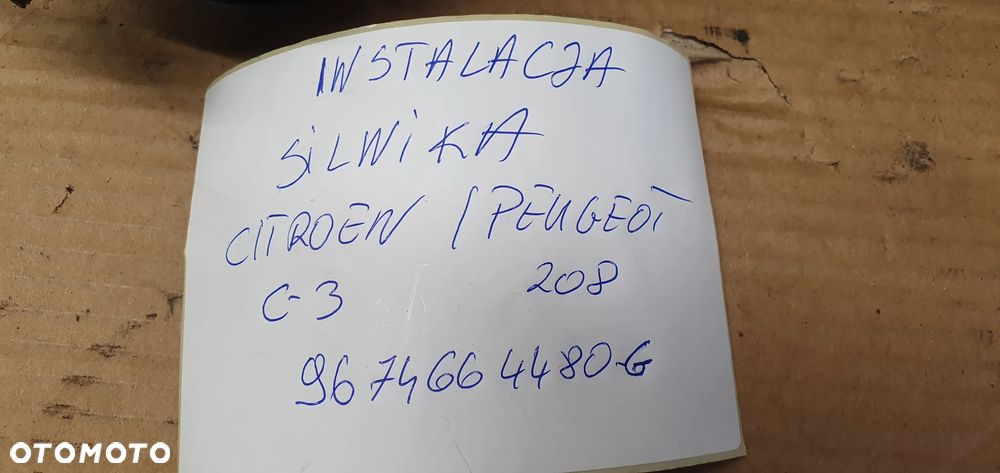 INSTALACJA
SiLNiKA
CITROEN / PEUGEOT
C-3 208
9674664480-G
OTOMOTO